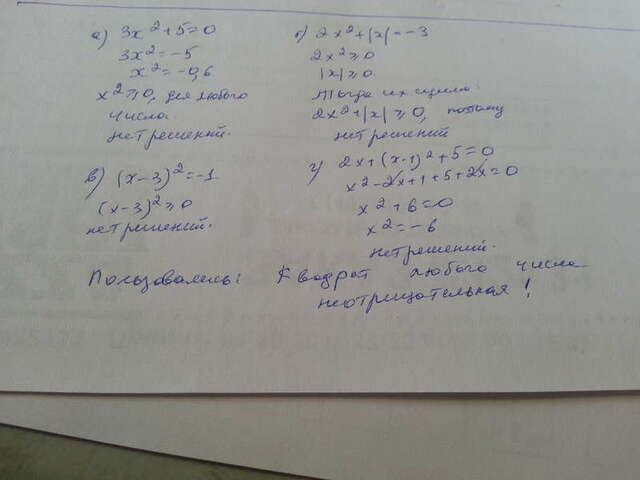 а) 3x² + 5 = 0
3x² = -5
x² = -0,6
x² ≥ 0, для любого
числа
нет решений.
б) 2x² + |x| = -3
2x² ≥ 0
|x| ≥ 0.
Тогда их сумма
2x² + |x| ≥ 0, поэтому
нет решений
в) (x-3)² = -1
(x-3)² ≥ 0
нет решений.
г) 2x + (x-1)² + 5 = 0
x² - 2x + 1 + 5 + 2x = 0
x² + 6 = 0
x² = -6
нет решений.
Пользовались: Квадрат любого числа
неотрицательная!